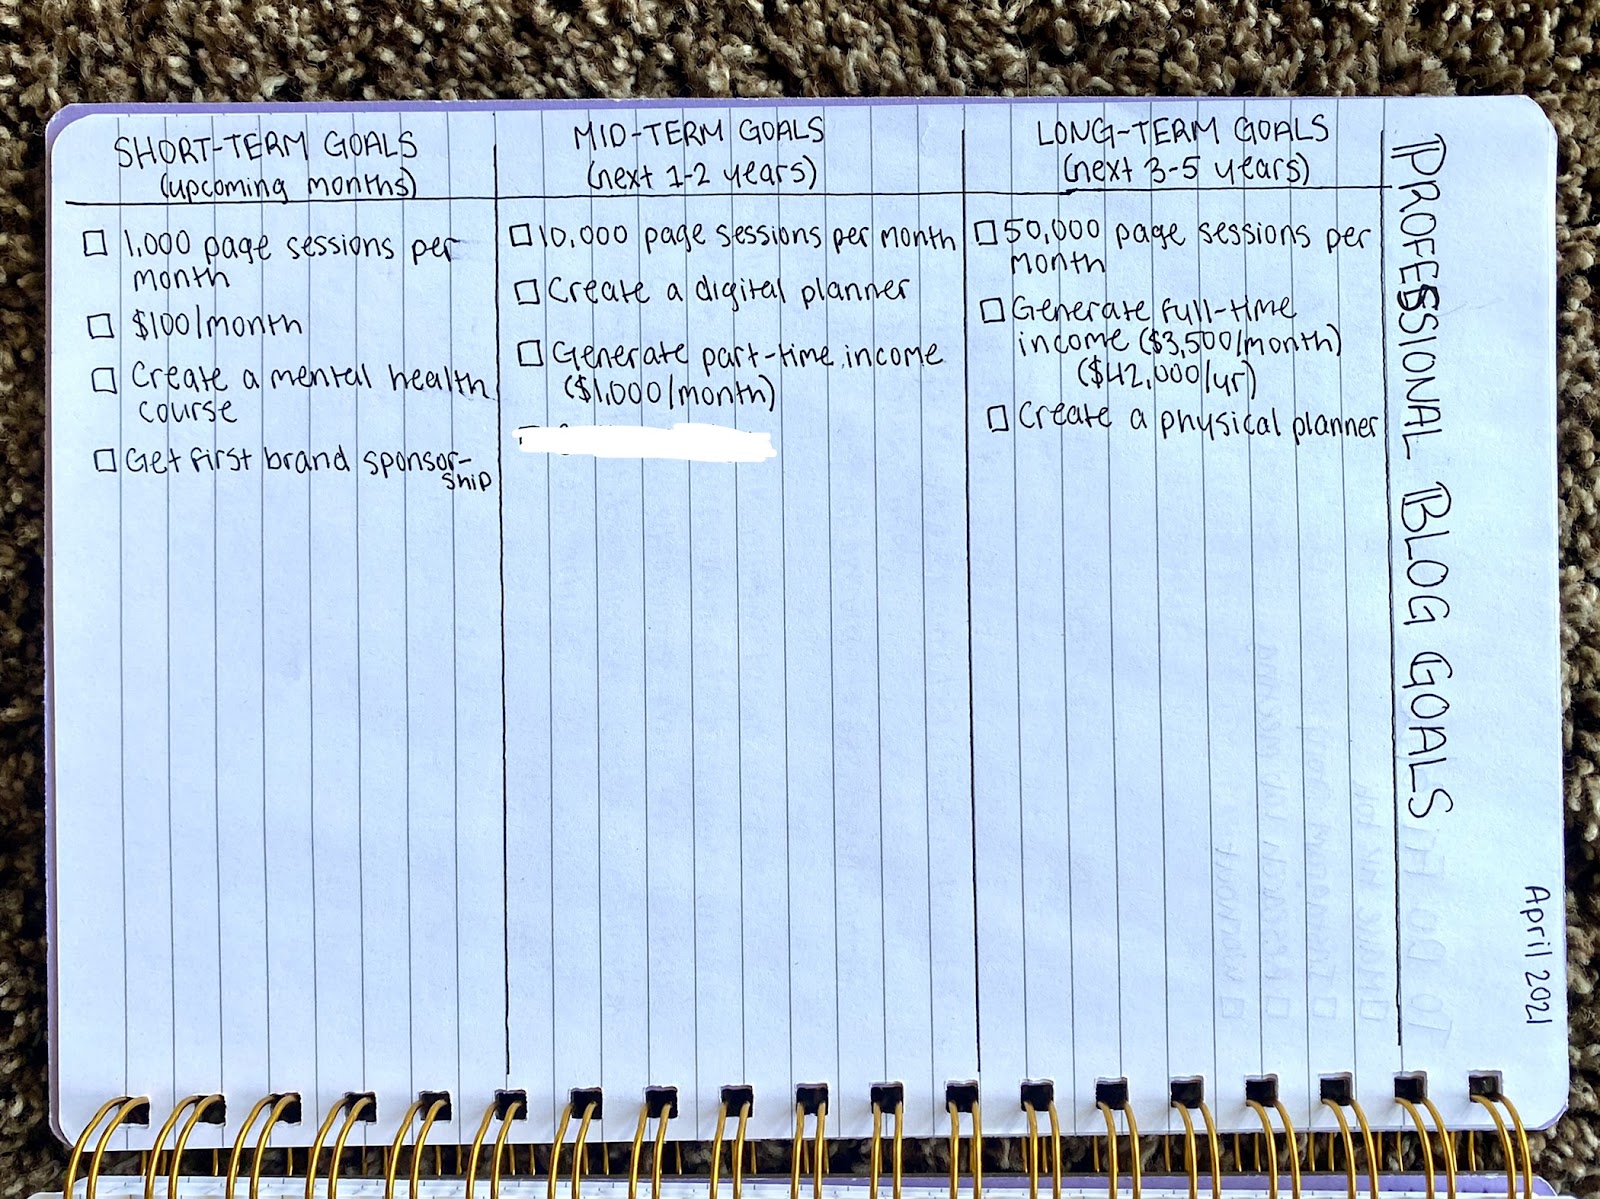 PROFESSIONAL BLOG GOALS
April 2021
SHORT-TERM GOALS
(upcoming months)
1,000 page sessions per
month
$100/month
Create a mental health
course
Get first brand sponsor-
ship
MID-TERM GOALS
(next 1-2 years)
10,000 page sessions per month
Create a digital planner
Generate part-time income
($1,000/month)
LONG-TERM GOALS
(next 3-5 years)
50,000 page sessions per
month
Generate full-time
income ($3,500/month)
($42,000/yr)
Create a physical planner